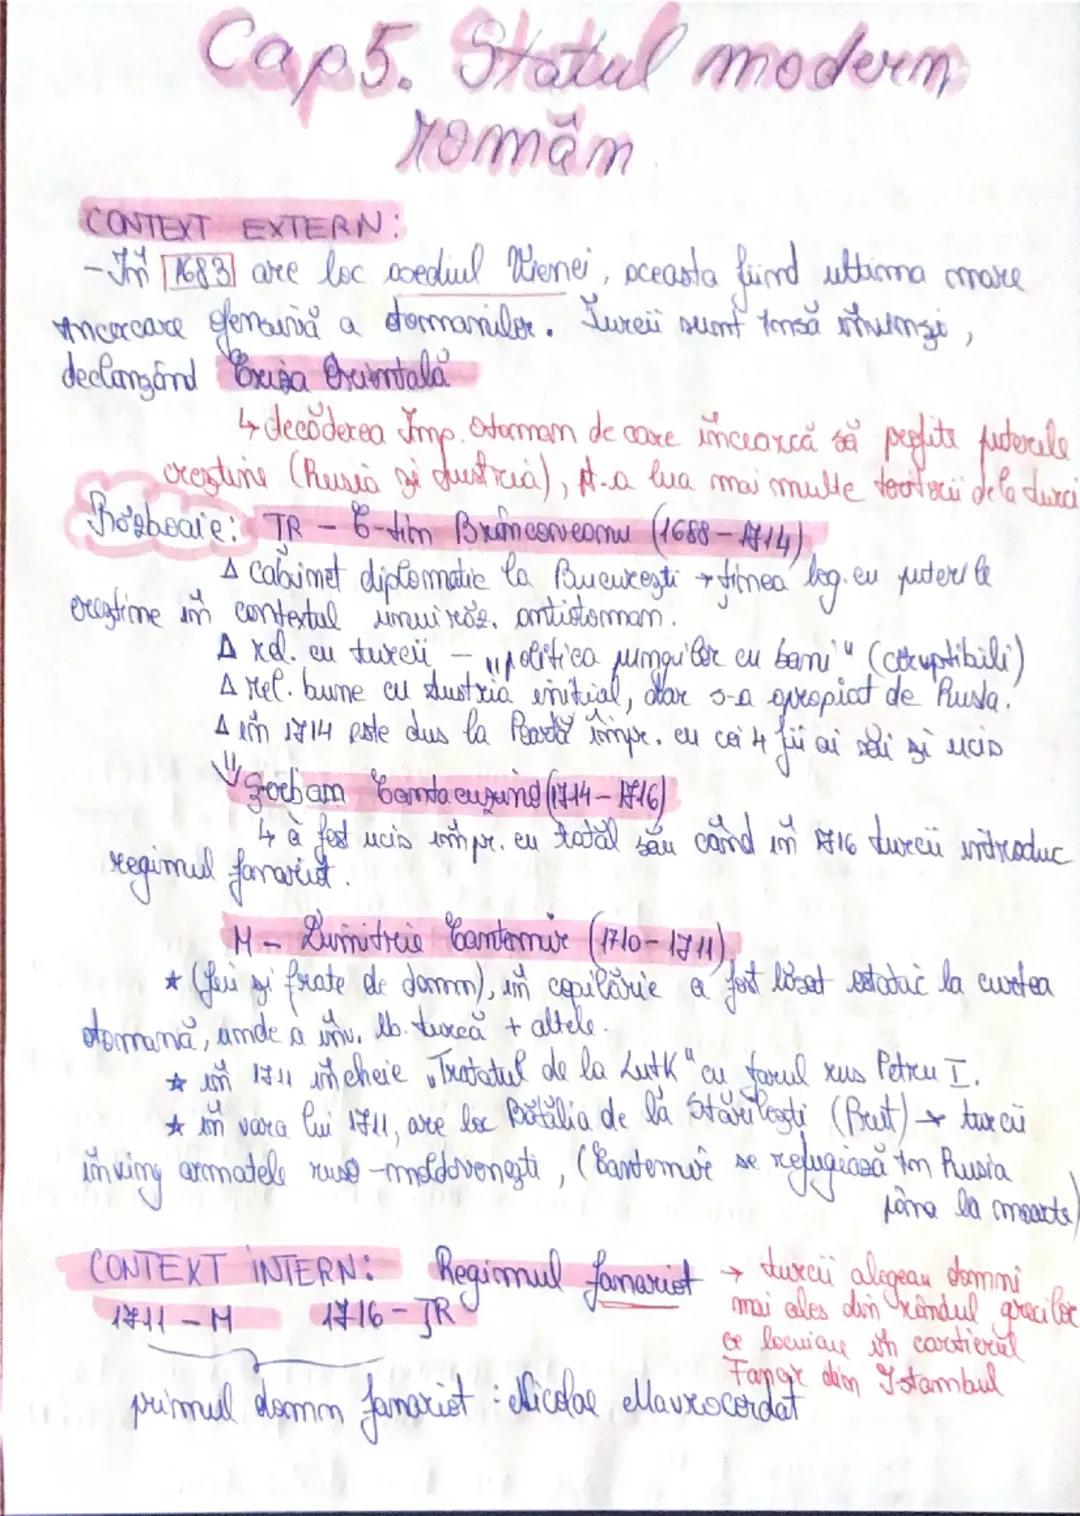 Cap 5. Statul modern
român
CONTEXT EXTERN:
- În 1683 are loc asediul Vienei, aceasta fiind ultima mare
încercare ofensivă a otomanilor. Turcii sunt însă învinși,
declanșând Criza Orientală
↳ decăderea Imp. Otoman de care încearcă să profite puterile
creștine (Rusia și Austria), pt. a lua mai multe teritorii de la turci
Războaie: TR - C-tin Brâncoveanu (1688-1714)
Δ cabinet diplomatic la București → ținea leg. cu puterile
creștine în contextul unui răz. antiotoman.
Δ rel. cu turcii - „politica pungilor cu bani" (coruptibili)
Δ rel. bune cu Austria inițial, dar s-a apropiat de Rusia.
Δ în 1714 este dus la Poartă împr. cu cei 4 fii ai săi și ucis
Cantacuzino (1714-1716)
↳ a fost ucis împr. cu tatăl său când în 1716 turcii introduc
regimul fanariot.
M - Dimitrie Cantemir (1710-1711)
★ (fiu și frate de domn), în copilărie a fost luat ostatic la curtea
otomană, unde a înv. lb. turcă + altele.
★ în 1711 încheie „Tratatul de la Lutk" cu țarul rus Petru I.
★ în vara lui 1711, are loc Bătălia de la Stănilești (Prut) → turcii
înving armatele ruso-moldovenești, (Cantemir se refugiază în Rusia
până la moarte)
CONTEXT INTERN: Regimul fanariot → turcii alegeau domni
1711 - M 1716 - ȚR mai ales din rândul grecilor
ce locuiau în cartierul
Fanar din Istambul
primul domn fanariot: Nicolae Mavrocordat